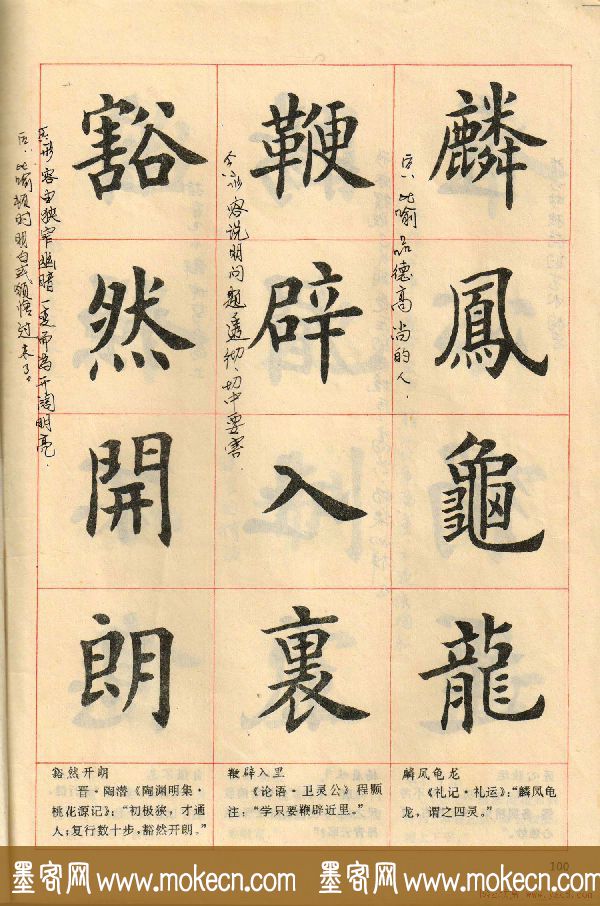 麟鳳龜龍
鞭辟入裏
豁然開朗
比喻品德高尚的人.
容说明问题透彻,切中要害.
形容由狭窄幽暗一变而为开阔明亮.
比喻顿时明白或领悟过来了。
麟凤龟龙
《礼记·礼运》:“麟凤龟
龙,谓之四灵。”
鞭辟入里
《论语·卫灵公》程颢
注:“学只要鞭辟近里。”
豁然开朗
晋·陶潜《陶渊明集·
桃花源记》:“初极狭,才通
人;复行数十步,豁然开朗。”
100
墨客网www.mokecn.com 墨客网www.mokecn.com